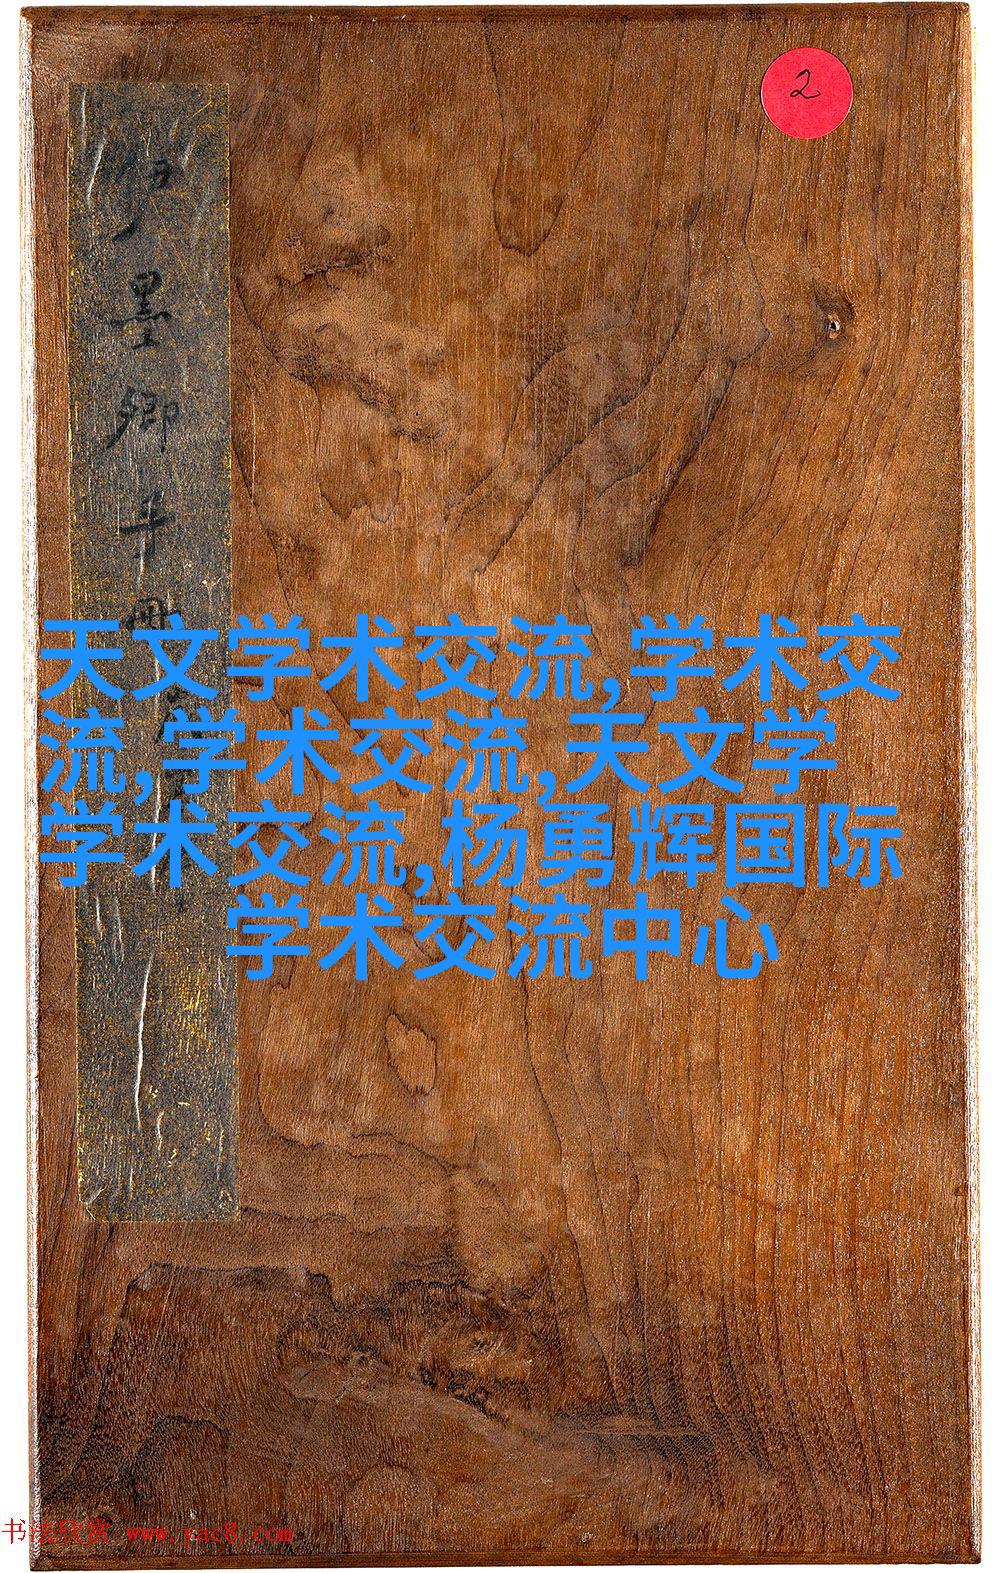 2
墨卿手
天文学术交流,学术交
流,学术交流,天文学
学术交流,杨勇辉国际
学术交流中心
书法欣赏 www.yac8.com